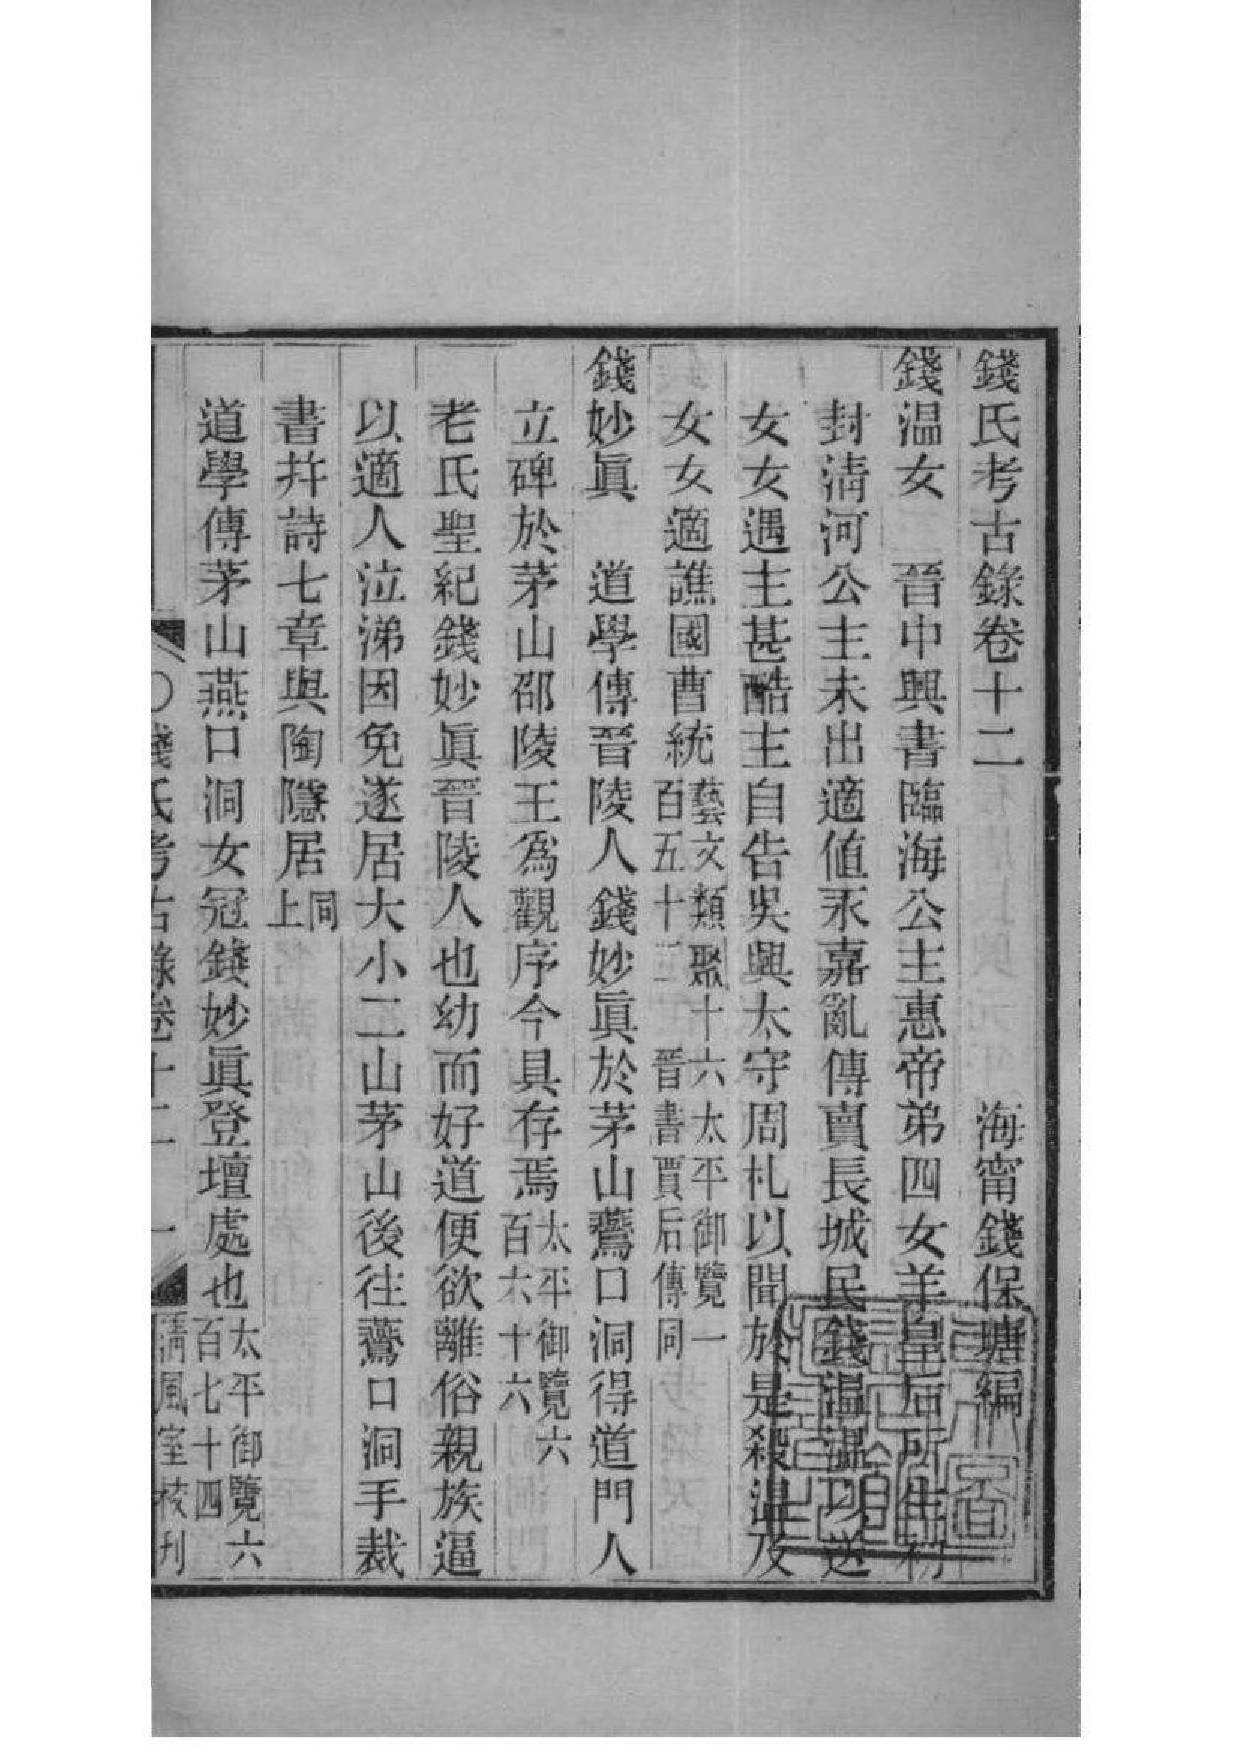 錢氏考古錄卷十二　海甯錢保塘編
錢温女　晉中興書臨海公主惠帝弟四女羊皇后所生初
封清河公主未出適值永嘉亂傳賣長城民錢温温以送
女女遇主甚酷主自告吳興太守周札以聞於是殺温及
女女適譙國曹統藝文類聚十六太平御覽一
百五十二晉書賈后傳同
錢妙眞　道學傳晉陵人錢妙眞於茅山鷰口洞得道門人
立碑於茅山邵陵王爲觀序今具存焉太平御覽六
百六十六
老氏聖紀錢妙眞晉陵人也幼而好道便欲離俗親族逼
以適人泣涕因免遂居大小二山茅山後往鷰口洞手裁
書幷詩七章與陶隱居同
上
道學傳茅山燕口洞女冠錢妙眞登壇處也太平御覽六
百七十四
錢氏考古錄卷十二　一　清風室校刊